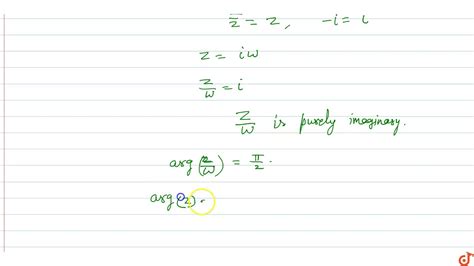 z̅ = z, -i = i
z = iω
z/ω = i
z/ω is purely imaginary.
arg(z/ω) = π/2.
arg(z).